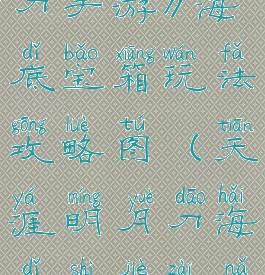 刀手游//海
dǐ bǎo xiāng wán fǎ
底宝箱玩法
gōng lüè tú tiān
攻略图(天
yá míng yuè dāo hǎi
涯明月刀海
dǐ shì jiè zài nǎ